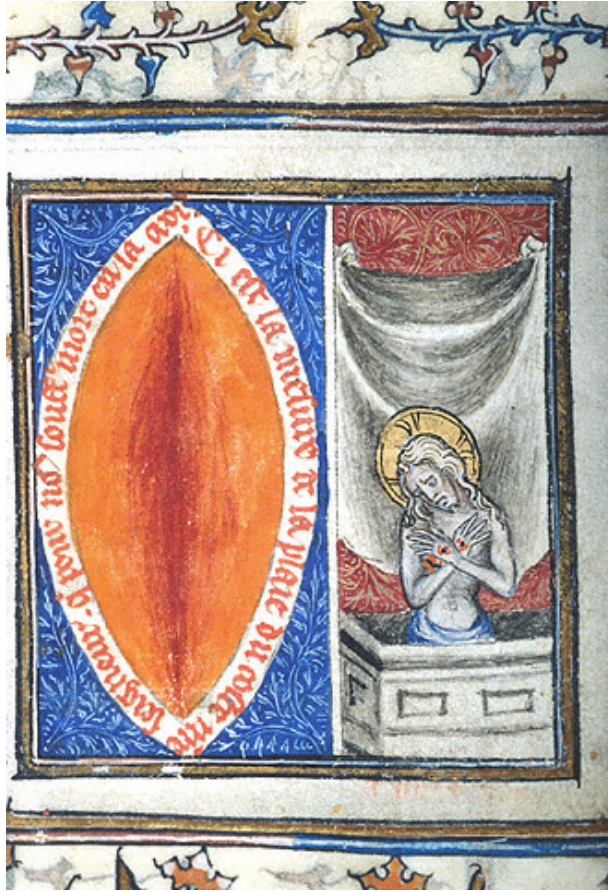 Ci est la mesure de la plaie du coste nre
seigneur · q pour nos souffri mort en la